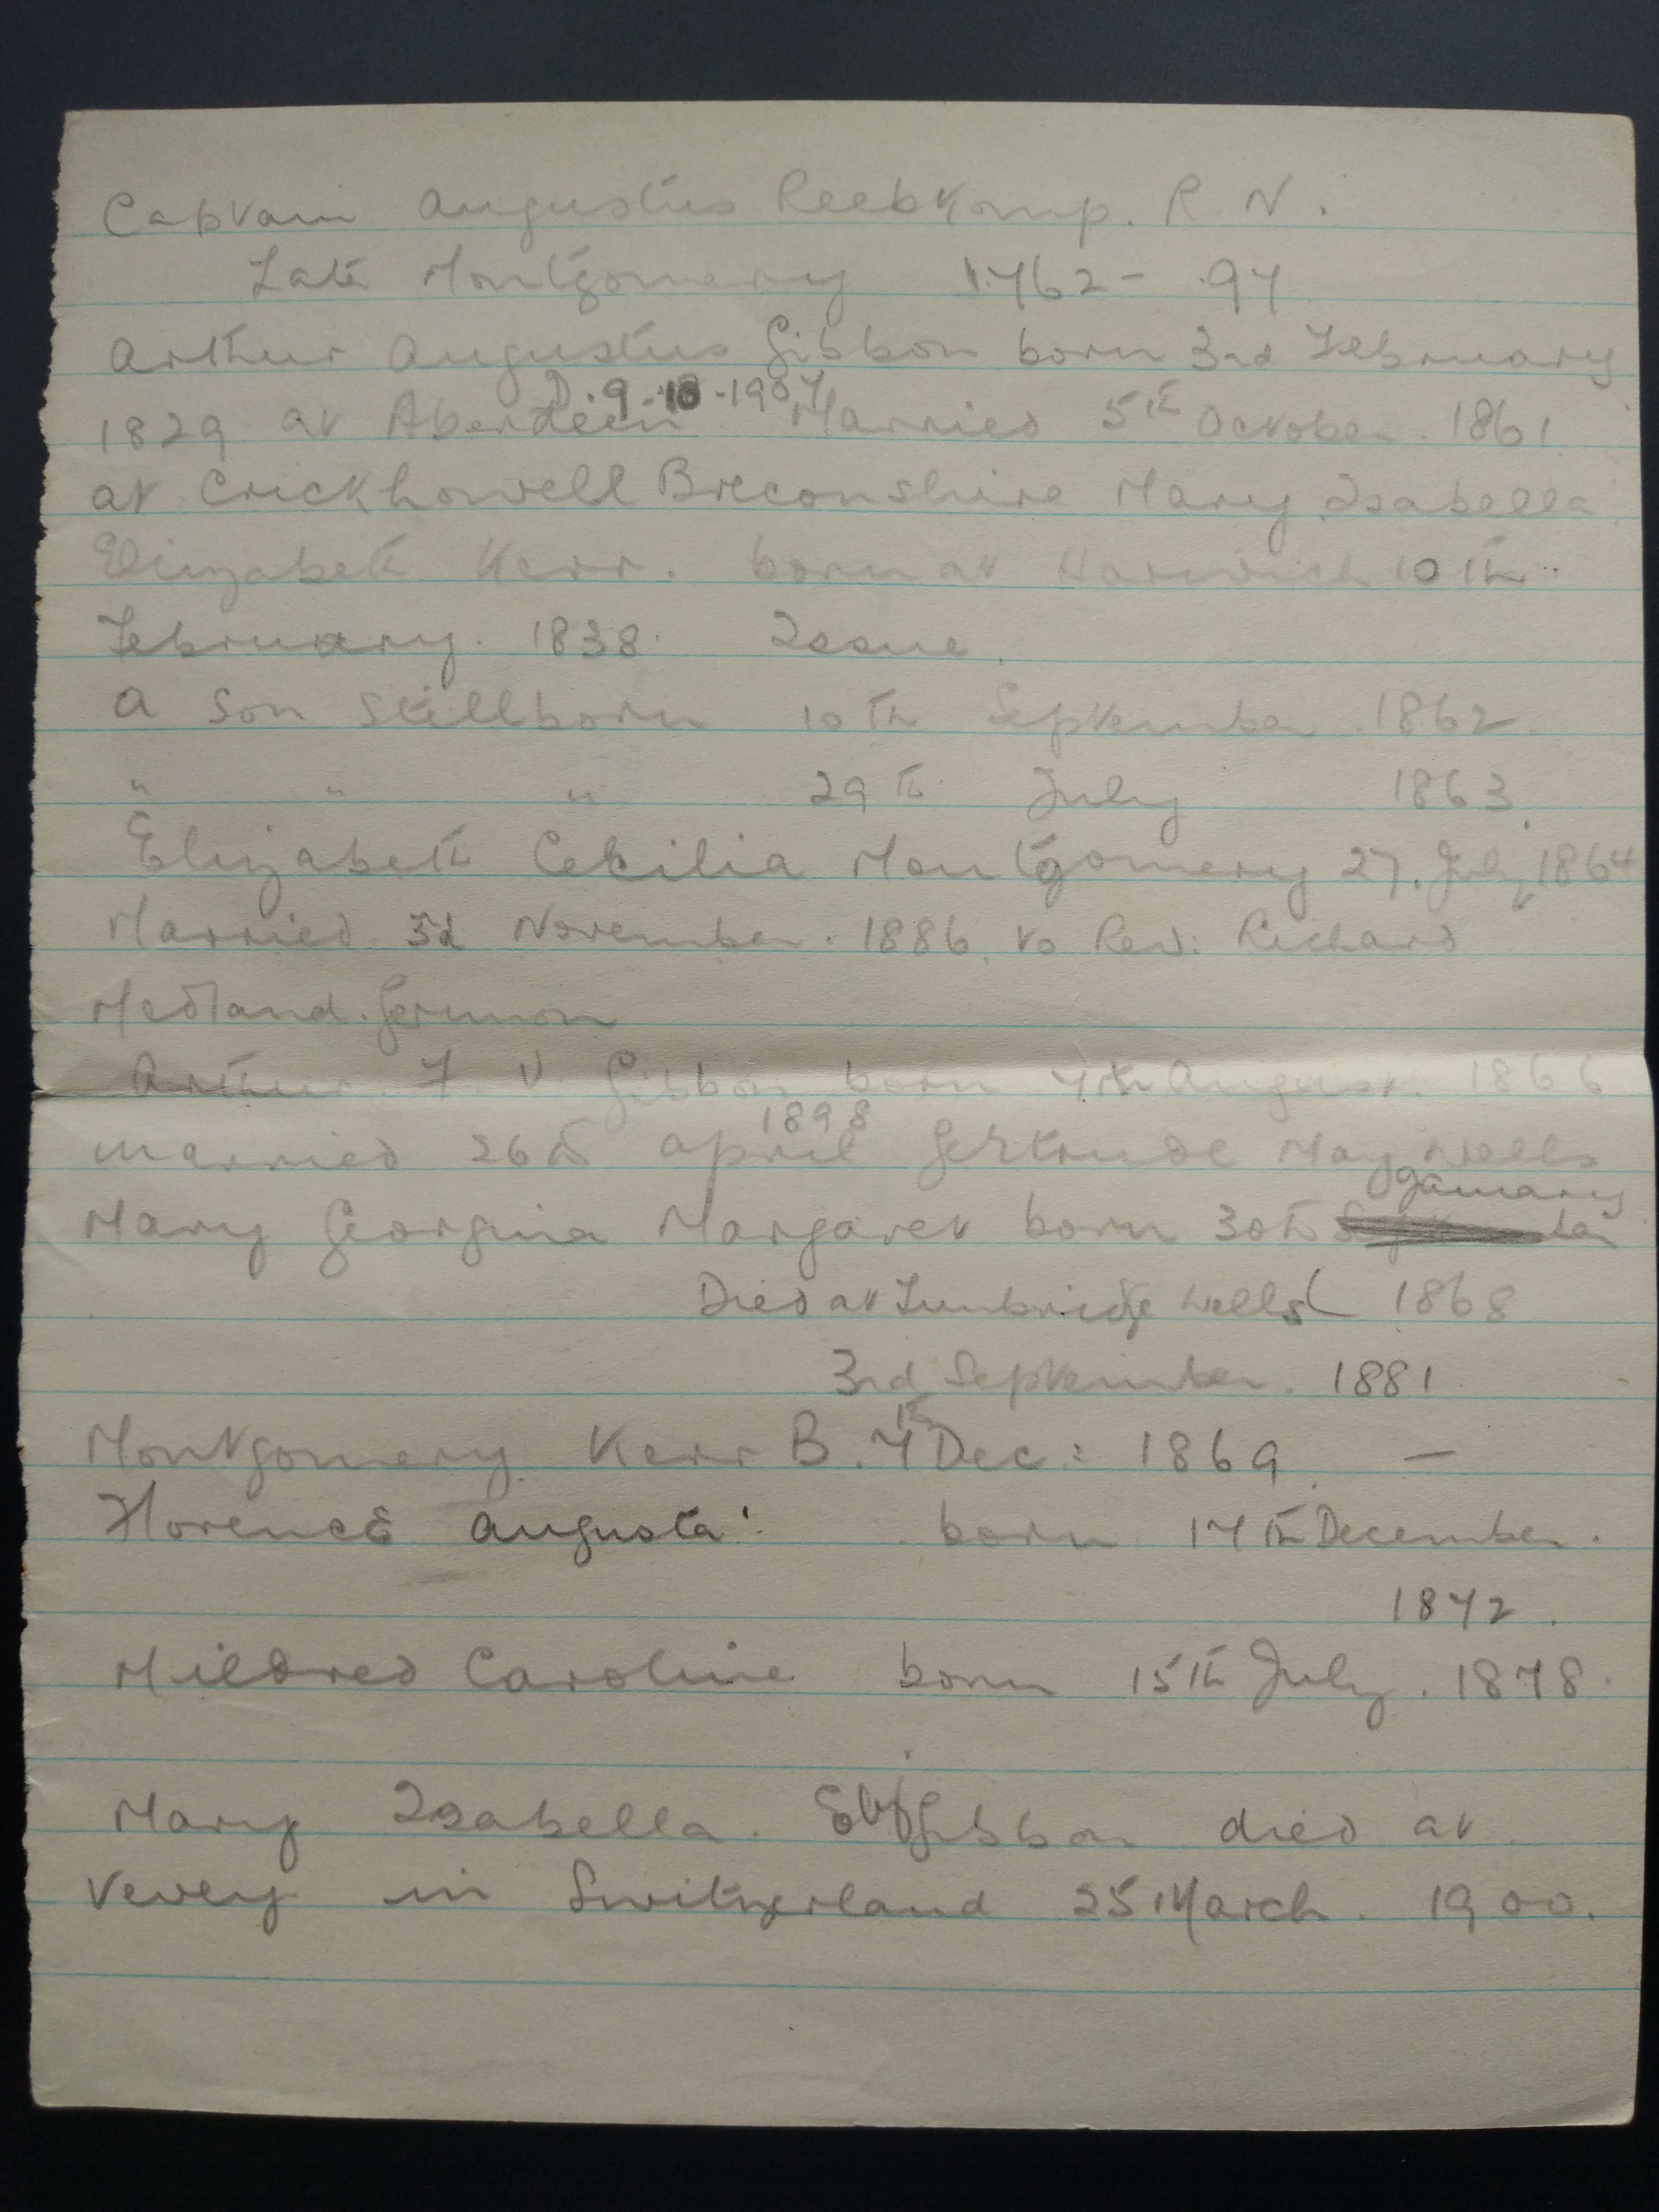 Captain Augustus R. N.
Late Montgomery 1762 - 97
Arthur Augustus Gibbon born 3rd February
D. 9-10-1907
1829 at Aberdeen Married 5th October. 1861
at Crickhowell Breconshire Mary Isabella
Elizabeth Kerr. born at Harwich 10th
February. 1838. Issue.
a Son Stillborn 10th September. 1862.
" " " 29th July 1863.
Elizabeth Cecilia Montgomery 27. July 1864
Married 3d November. 1886. to Rev: Richard
Medland. Germon
Arthur. F. V. Gibbon born 7th August. 1866
1898
married 26th april Gertrude May Wells
January
Mary Georgina Margaret born 30th
Died at Tunbridge Wells ( 1868
3rd September. 1881
Montgomery Kerr B. 7th Dec: 1869. —
Florence Augusta. born 17th December.
1872.
Mildred Caroline born 15th July. 1878.
Mary Isabella. Gibbon died at
Vevey in Switzerland 25 March. 1900.